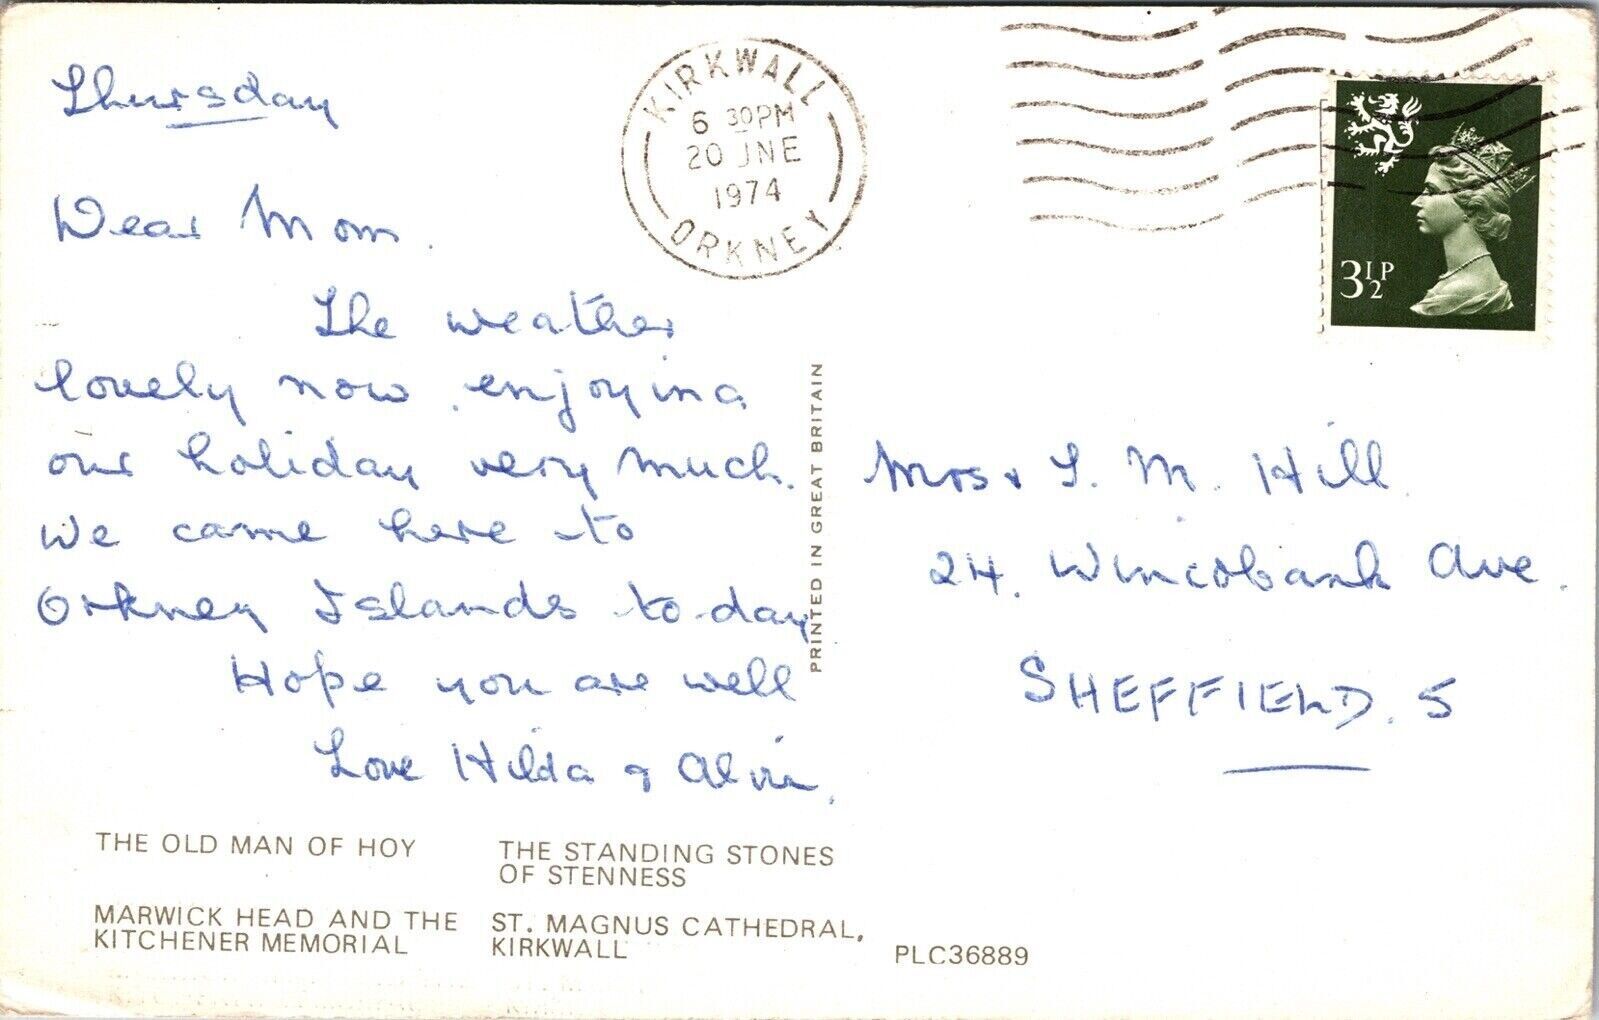 Thursday
Dear Mom.
The weather
lovely now enjoying
our holiday very much.
We came here to
Orkney Islands to-day
Hope you are well
Love Hilda & Alvin.
KIRKWALL
6 30PM
20 JNE
1974
ORKNEY
3½P
PRINTED IN GREAT BRITAIN
Mrs. M. Hill
24. Wincobank Ave.
SHEFFIELD. 5
THE OLD MAN OF HOY
THE STANDING STONES
OF STENNESS
MARWICK HEAD AND THE
KITCHENER MEMORIAL
ST. MAGNUS CATHEDRAL,
KIRKWALL
PLC36889